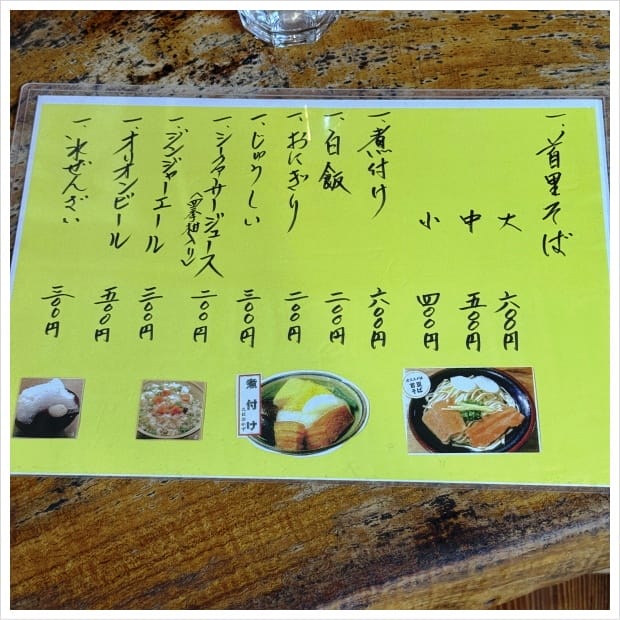 一、首里そば
大 六〇〇円
中 五〇〇円
小 四〇〇円
一、煮付け 六〇〇円
一、白飯 二〇〇円
一、おにぎり 二〇〇円
一、じゅうしい 三〇〇円
一、シークァーサージュース 二〇〇円
一、ジンジャーエール 三〇〇円
一、オリオンビール 五〇〇円
一、氷ぜんざい 三〇〇円
煮付け
首里そば